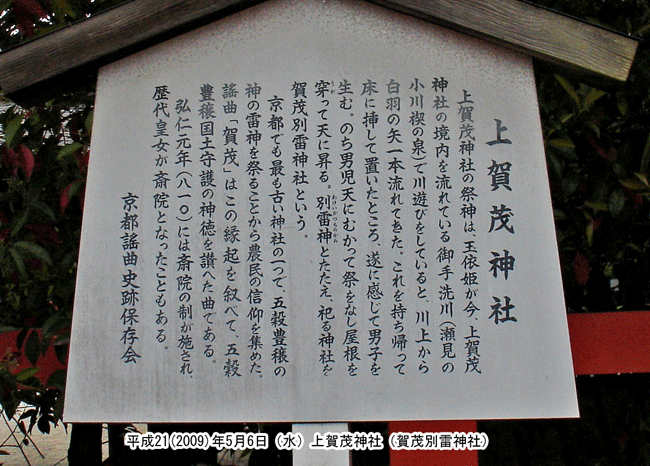 上賀茂神社
上賀茂神社の祭神は、玉依姫が今、上賀茂
神社の境内を流れている御手洗川（瀬見の
小川禊の泉）で川遊びをしていると、川上から
白羽の矢一本流れてきた。これを持ち帰って
床に挿して置いたところ、遂に感じて男子を
生む。のち男児天にむかって祭をなし屋根を
穿って天に昇る。別雷神とたたえ、祀る神社を
賀茂別雷神社という。
京都でも最も古い神社の一つで、五穀豊穣の
神の雷神を祭ることから農民の信仰を集めた。
謡曲「賀茂」はこの縁起を叙べて、五穀
豊穣国土守護の神徳を讃へた曲である。
弘仁元年（八一〇）には斎院の制が施され、
歴代皇女が斎院となったこともある。
京都謡曲史跡保存会
平成21(2009)年5月6日（水）上賀茂神社（賀茂別雷神社）